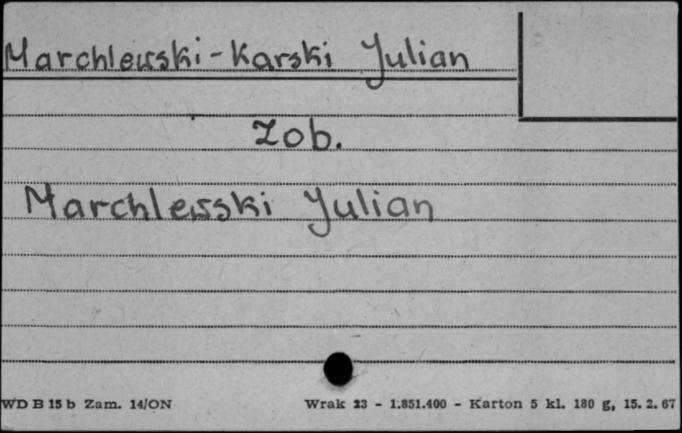 Marchlewski-Karski Julian
Zob.
Marchlewski Julian
WD B 15 b Zam. 14/ON Wrak 23 - 1.851.400 - Karton 5 kl. 180 g, 15. 2. 67